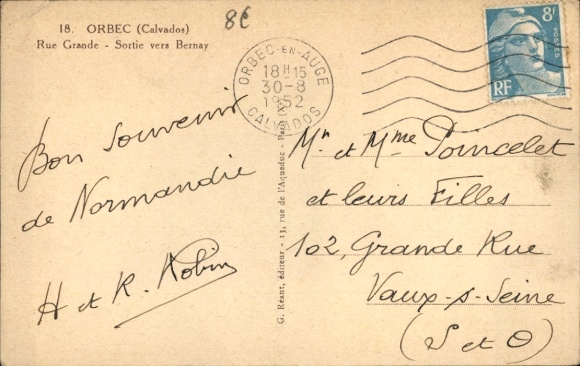 18. ORBEC (Calvados)
Rue Grande - Sortie vers Bernay
8€
ORBEC-EN-AUGE
18H15
30-8
1952
CALVADOS
8F
POSTES
RF
Bon Souvenir
de Normandie
H et R. Robin
G. Réant, éditeur - 13, rue de l'Aqueduc - Paris (X)
Mr et Mme Poincelet
et leurs Filles
102, Grande Rue
Vaux-s-Seine
(S et O)